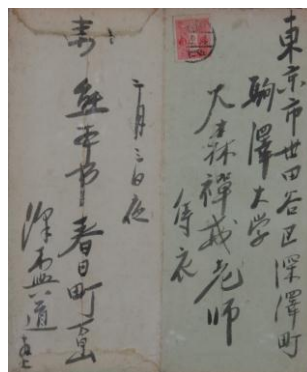 東京市世田谷区深澤町
駒澤大学
大森禅戒老師
侍衣
二月三日夜
熊本市春日町
澤
道